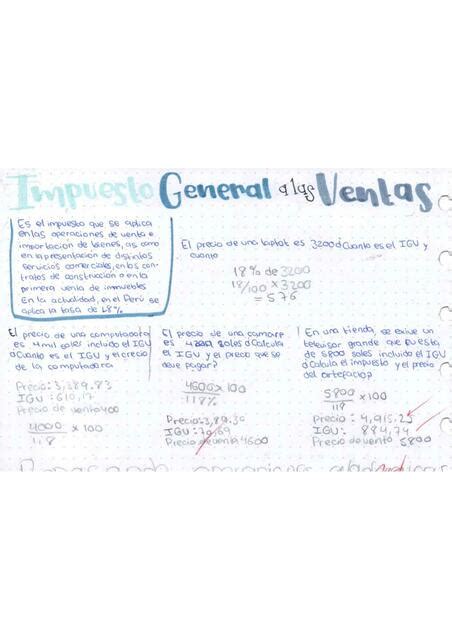 Impuesto General a las Ventas
Es el impuesto que se aplica
en las operaciones de venta e
importacion de bienes, asi como
en la presentacion de distintos
servicios comerciales, en los con-
tratos de construcción o en la
primera venta de inmuebles
En la actualidad, en el Perú se
aplica la tasa de 18%
El precio de una laptot es 3200 ¿Cuanto es el IGV y
cuanto
18% de 3200
18/100 × 3200
= 576
El precio de una computadora
es 4 mil soles incluido el IGV
¿Cuanto es el IGV y el precio
de la computadora
Precio: 3,389.83
IGV: 610,17
Precio de venta 400
4000 x 100
118
El precio de una camara
es soles ¿Calcula
el IGV y el precio que se
debe pagar?
4600 x 100
118%
Precio: 3,89.30
IGV: 70,69
Precio de venta 4600
En una tienda, se exive un
televisor grande que cuesta
de 5800 soles incluido el IGV
¿Calcula el impuesto y el precio
del artefacto?
5800 x100
118
Precio: 4,915.25
IGV: 884,74
Precio de vento 5800